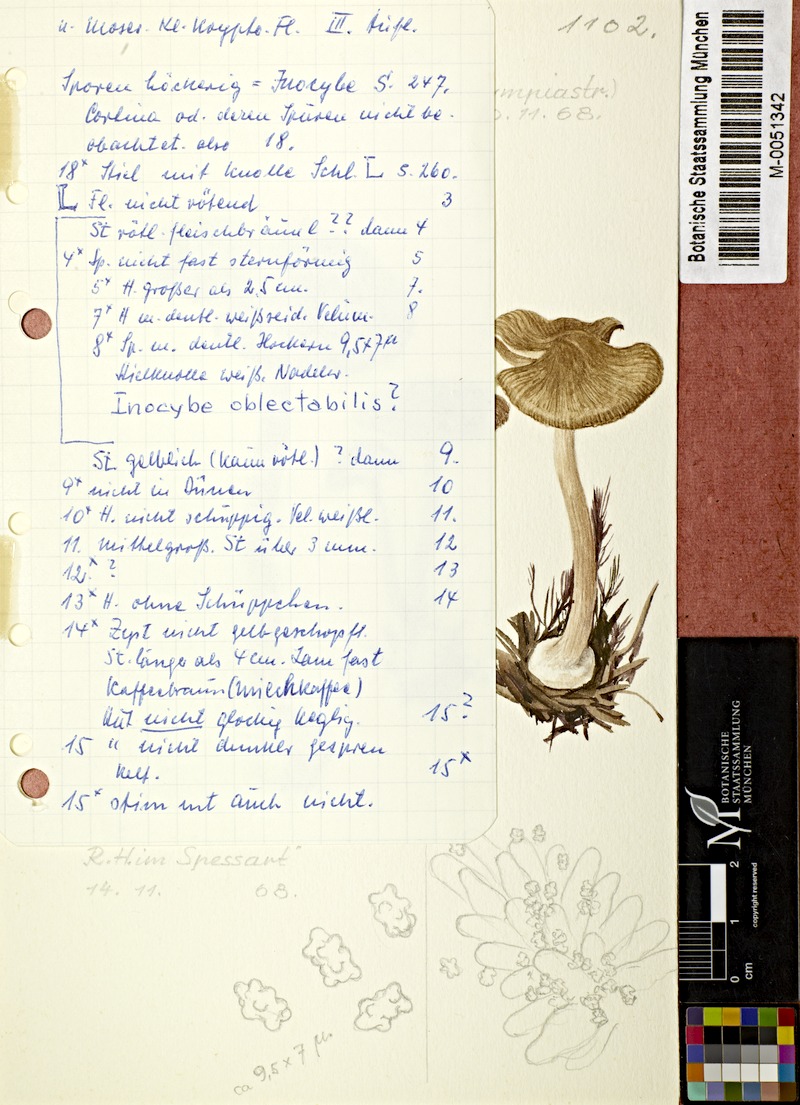 n. Moser. Kl. Krypto. Fl. III. Aufl.
Sporen höckerig = Inocybe S. 247.
Cortina od. deren Spuren nicht be-
obachtet. also 18.
18* Stiel mit Knolle Schl. L S. 260.
L Fl. nicht rötend 3
St rötl. fleischbräunl ?? dann 4
4* Sp. nicht fast sternförmig 5
5* H. größer als 2,5 cm. 7.
7* H m. deutl. weißseid. Velum. 8
8* Sp. m. deutl. Höckern 9,5x7µ
Stielknolle weiß. Nadelw.
Inocybe oblectabilis?
St. gelblich (kaum rötl.) ? dann 9.
9* nicht in Dünen 10
10* H. nicht schuppig. Vel. weißl. 11.
11. mittelgroß. St über 3 mm. 12
12.* ? 13
13* H. ohne Schüppchen. 14
14* Zyst nicht gelbgeschopft.
St. länger als 4 cm. Lam fast
Kaffeebraun (Milchkaffee)
Hut nicht glockig keglig. 15?
15 " nicht dunkler
15*
15* stimmt auch nicht.
1102.
mpiastr.)
.11.68.
Botanische Staatssammlung München
M-0051342
R. H. im Spessart"
14. 11. 68.
ca 9,5 x 7 µ.
BOTANISCHE
STAATSSAMMLUNG
MÜNCHEN
copyright reserved
0 1 2
cm